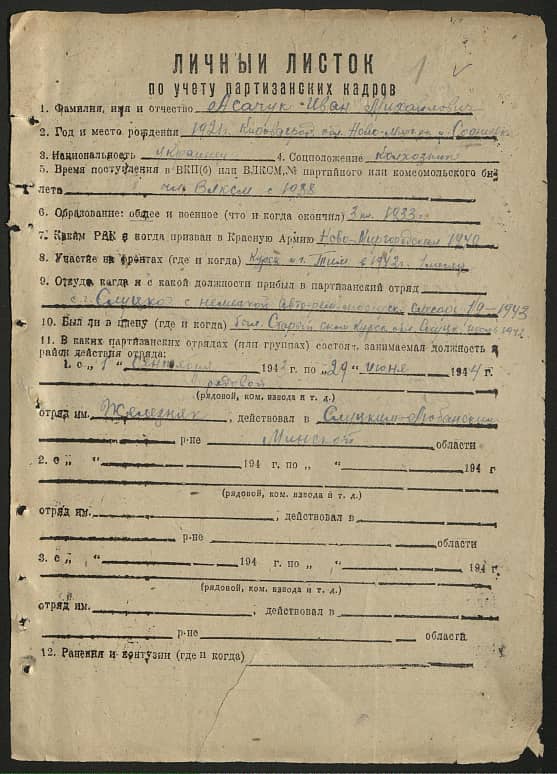 1
ЛИЧНЫЙ ЛИСТОК
по учету партизанских кадров
1. Фамилия, имя и отчество Асачук Иван Михайлович
2. Год и место рождения 1921 г.
3. Национальность украинец 4. Соцположение колхозник
5. Время поступления в ВКП(б) или ВЛКСМ, № партийного или комсомольского би-
лета чл. ВЛКСМ с 1938
6. Образование: общее и военное (что и когда окончил) 3 кл. 1933 г.
7. Каким РВК и когда призван в Красную Армию Ново-Миргородский 1940
8. Участие на фронтах (где и когда) Курск г. Тим 1942 г.
9. Откуда, когда и с какой должности прибыл в партизанский отряд
с г. Слуцка с немецкой 1943
10. Был ли в плену (где и когда) был. Старый Оскол Курск. обл. Слуцк 1942
11. В каких партизанских отрядах (или группах) состоял, занимаемая должность и
район действия отряда:
1. с „ 1 “ сентября 1943 г. по „ 29 “ июня 1944 г.
рядовой
(рядовой, ком. взвода и т. д.)
отряд им. Железняк, действовал в Слуцким-Любанским
р-не Минской области
2. с „ “ 194 г. по „ “ 194 г
(рядовой, ком. взвода и т. д.)
отряд им. , действовал в
р-не области
3. с „ “ 194 г. по „ “ 194 г.
(рядовой, ком. взвода и т. д.)
отряд им. , действовал в
р-не области
12. Ранения и контузии (где и когда)